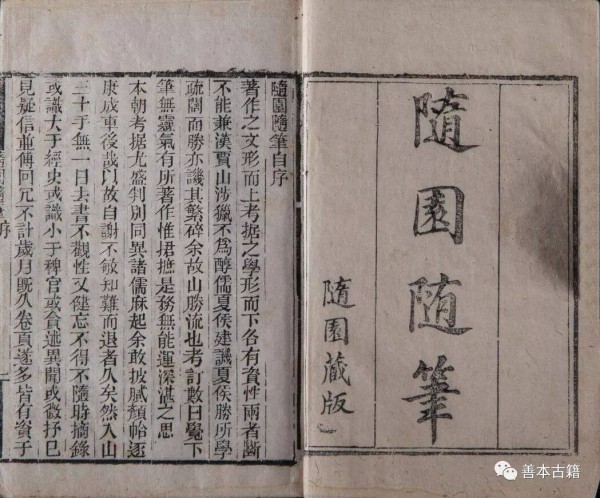 隨園随筆
隨園藏版
隨園隨筆自序
著作之文形而上考据之學形而下各有資性兩者斷
不能兼漢賈山涉獵不為醇儒夏侯建譏夏侯勝所學
疏闊而勝亦譏其繁碎余故山勝流也考訂數日覺下
筆無靈氣有所著作惟捃摭是務無能運深湛之思
本朝考据尤盛判別同異諸儒麻起余敢披膩顏帢逐
康成車後哉以故自謝不敏知難而退者久矣然入山
三十年無一日去書不觀性又健忘不得不隨時摘錄
或識大于經史或識小于稗官或貪述異聞或微抒己
見疑信並傳回冗不計歲月旣久卷頁遂多皆有資于
善本古籍